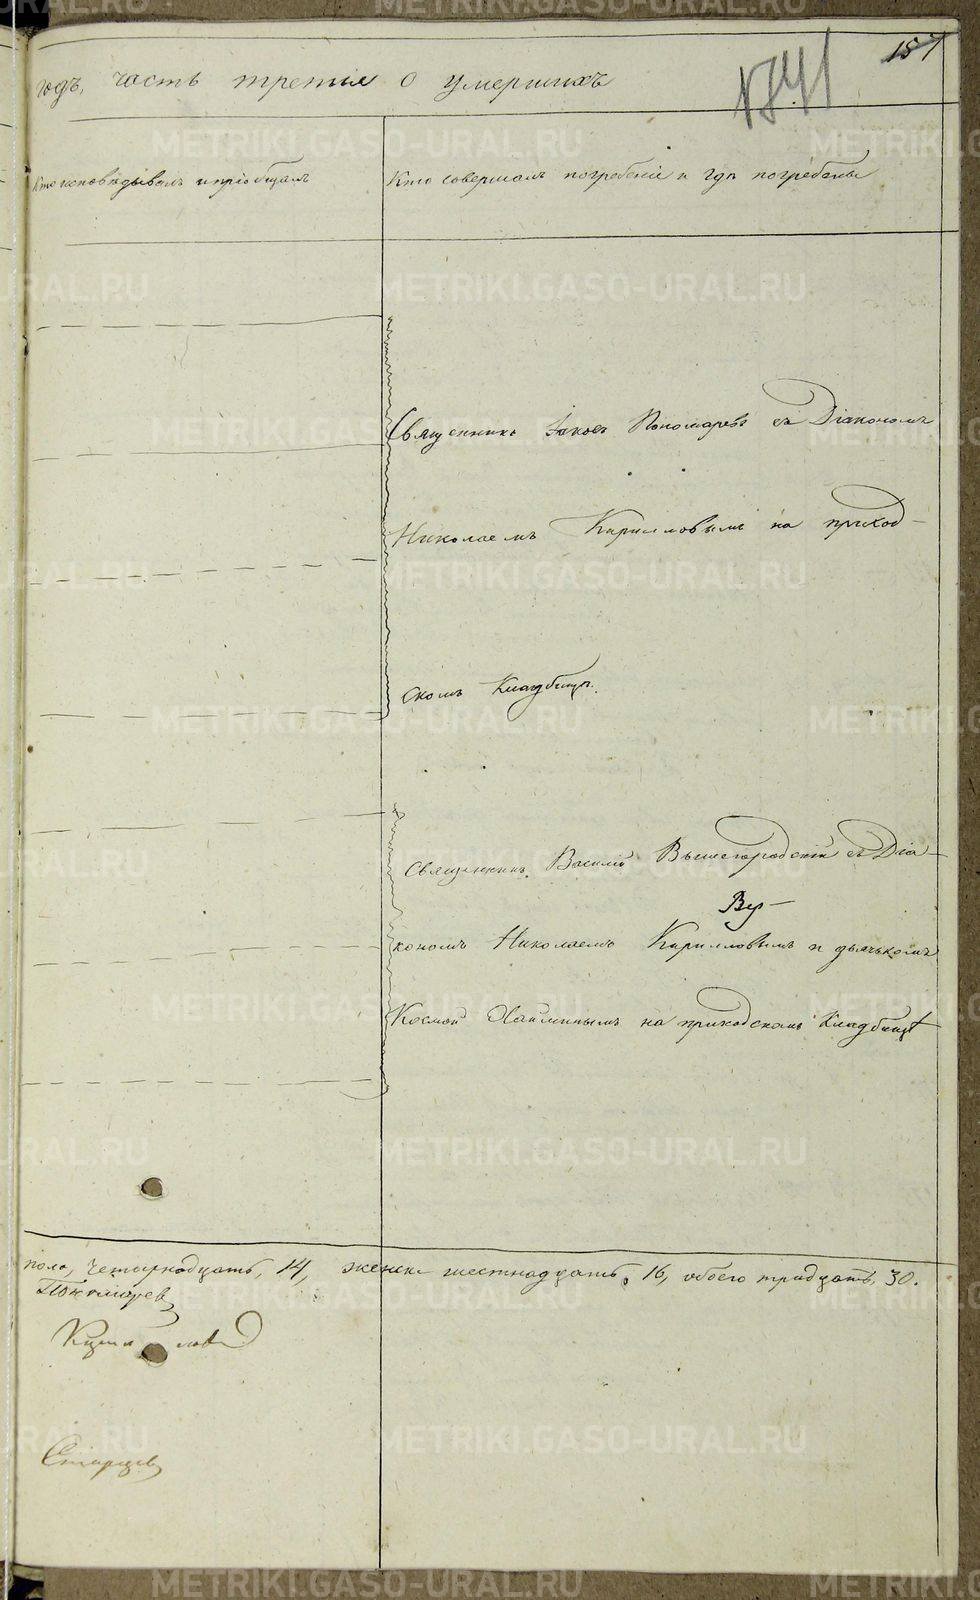 157
годъ, часть третія о умершихъ
Кто исповѣдывалъ и пріобщалъ
Кто совершалъ погребеніе и гдѣ погребены
Священникъ Іаковъ Пономаревъ съ Діакономъ
Николаемъ Кирилловымъ на приход-
скомъ Кладбищѣ.
Священникъ Василій Вышегородскій съ Діа-
кономъ Николаемъ Кирилловымъ и дьячькомъ
Космой на приходскомъ Кладбищѣ
пола, четырнадцать, 14, женска шестнадцать, 16, обоего тридцать, 30.
Пономарев
Старцев
METRIKI.GASO-URAL.RU